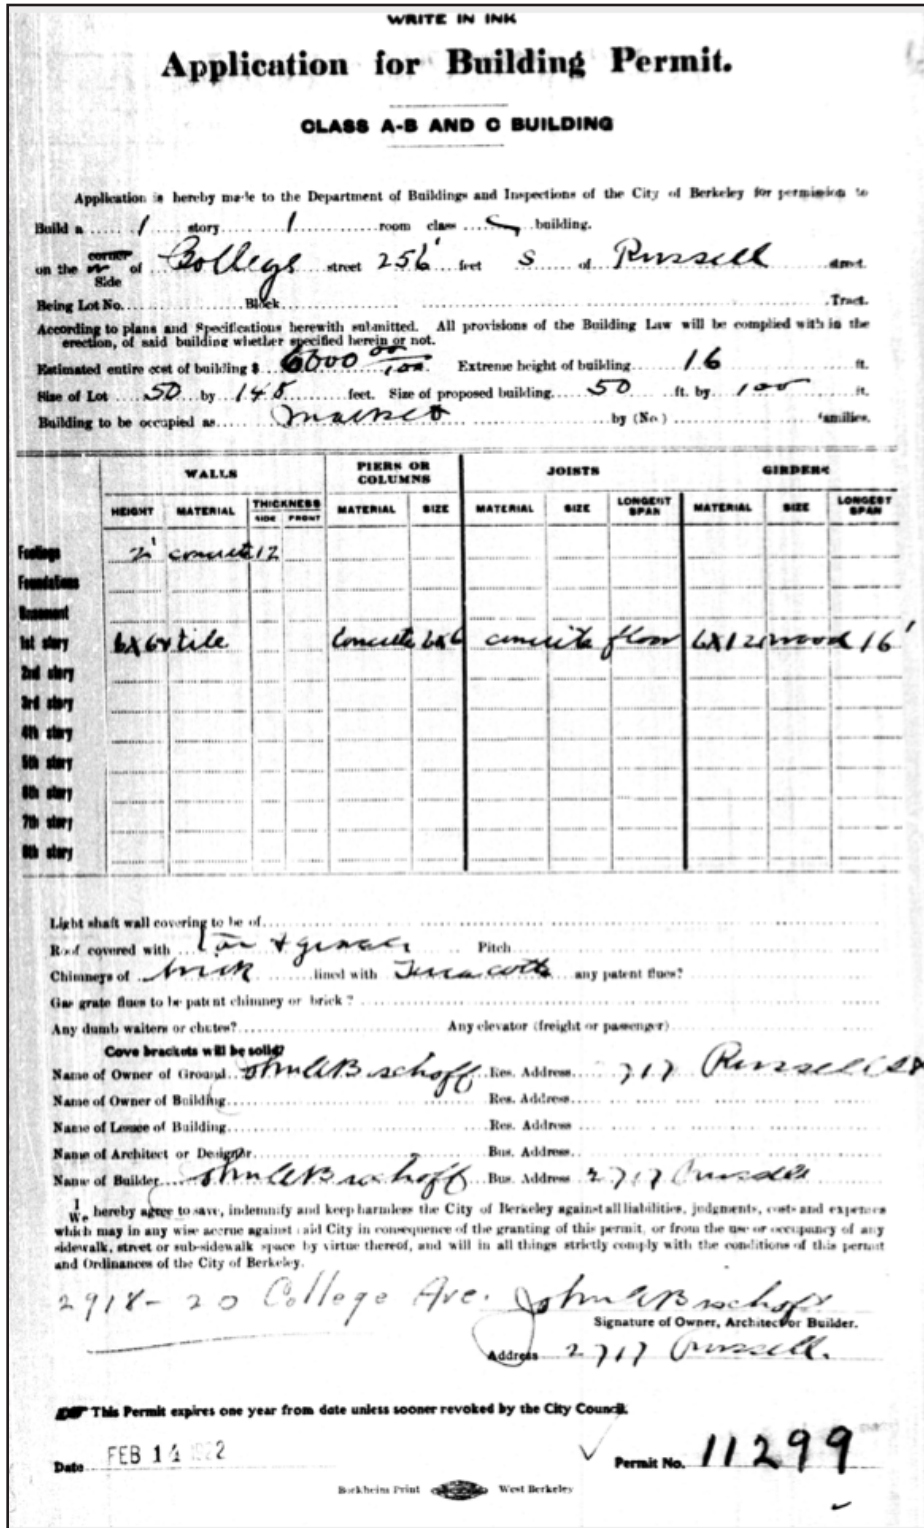 WRITE IN INK
Application for Building Permit.
CLASS A-B AND C BUILDING
Application is hereby made to the Department of Buildings and Inspections of the City of Berkeley for permission to
Build a 1 story 1 room class C building.
on the corner or Side of College street 256' feet S of Russell street.
Being Lot No. Block Tract.
According to plans and Specifications herewith submitted. All provisions of the Building Law will be complied with in the
erection, of said building whether specified herein or not.
Estimated entire cost of building $ 6000 00/100 Extreme height of building 16 ft.
Size of Lot 50 by 148 feet. Size of proposed building 50 ft. by 100 ft.
Building to be occupied as market by (No.) families.
WALLS PIERS OR COLUMNS JOISTS GIRDERS
HEIGHT MATERIAL THICKNESS SIDE FRONT MATERIAL SIZE MATERIAL SIZE LONGEST SPAN MATERIAL SIZE LONGEST SPAN
Footings 2' concrete 12
Foundations
Basement
1st story tile concrete 6x6 concrete floor 6x12 wood 16'
2nd story
3rd story
4th story
5th story
6th story
7th story
8th story
Light shaft wall covering to be of
Roof covered with Tar & gravel Pitch
Chimneys of brick lined with Terra cotta any patent flues?
Gas grate flues to be patent chimney or brick?
Any dumb waiters or chutes? Any elevator (freight or passenger)
Cove brackets will be solid?
Name of Owner of Ground John A Bischoff Res. Address 717 Russell St
Name of Owner of Building Res. Address
Name of Lessee of Building Res. Address
Name of Architect or Designer Bus. Address
Name of Builder John A Bischoff Bus. Address 2717 Russell
I We hereby agree to save, indemnify and keep harmless the City of Berkeley against all liabilities, judgments, costs and expenses
which may in any wise accrue against said City in consequence of the granting of this permit, or from the use or occupancy of any
sidewalk, street or sub-sidewalk space by virtue thereof, and will in all things strictly comply with the conditions of this permit
and Ordinances of the City of Berkeley.
2918-20 College Ave. John A Bischoff
Signature of Owner, Architect or Builder.
Address 2717 Russell.
This Permit expires one year from date unless sooner revoked by the City Council.
Date FEB 14 1922 Permit No. 11299
Borkheim Print West Berkeley